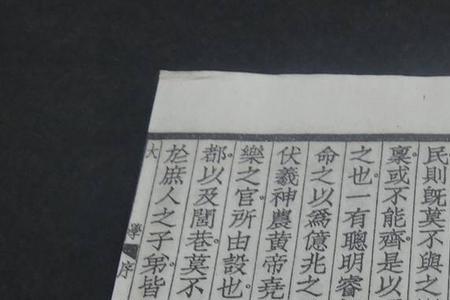 民則既莫不與之
稟或不能齊是以
之也一有聰明睿
命之以爲億兆之
伏羲神農黃帝堯
樂之官所由設也
都以及閭巷莫不
於庶人之子弟皆
大學序